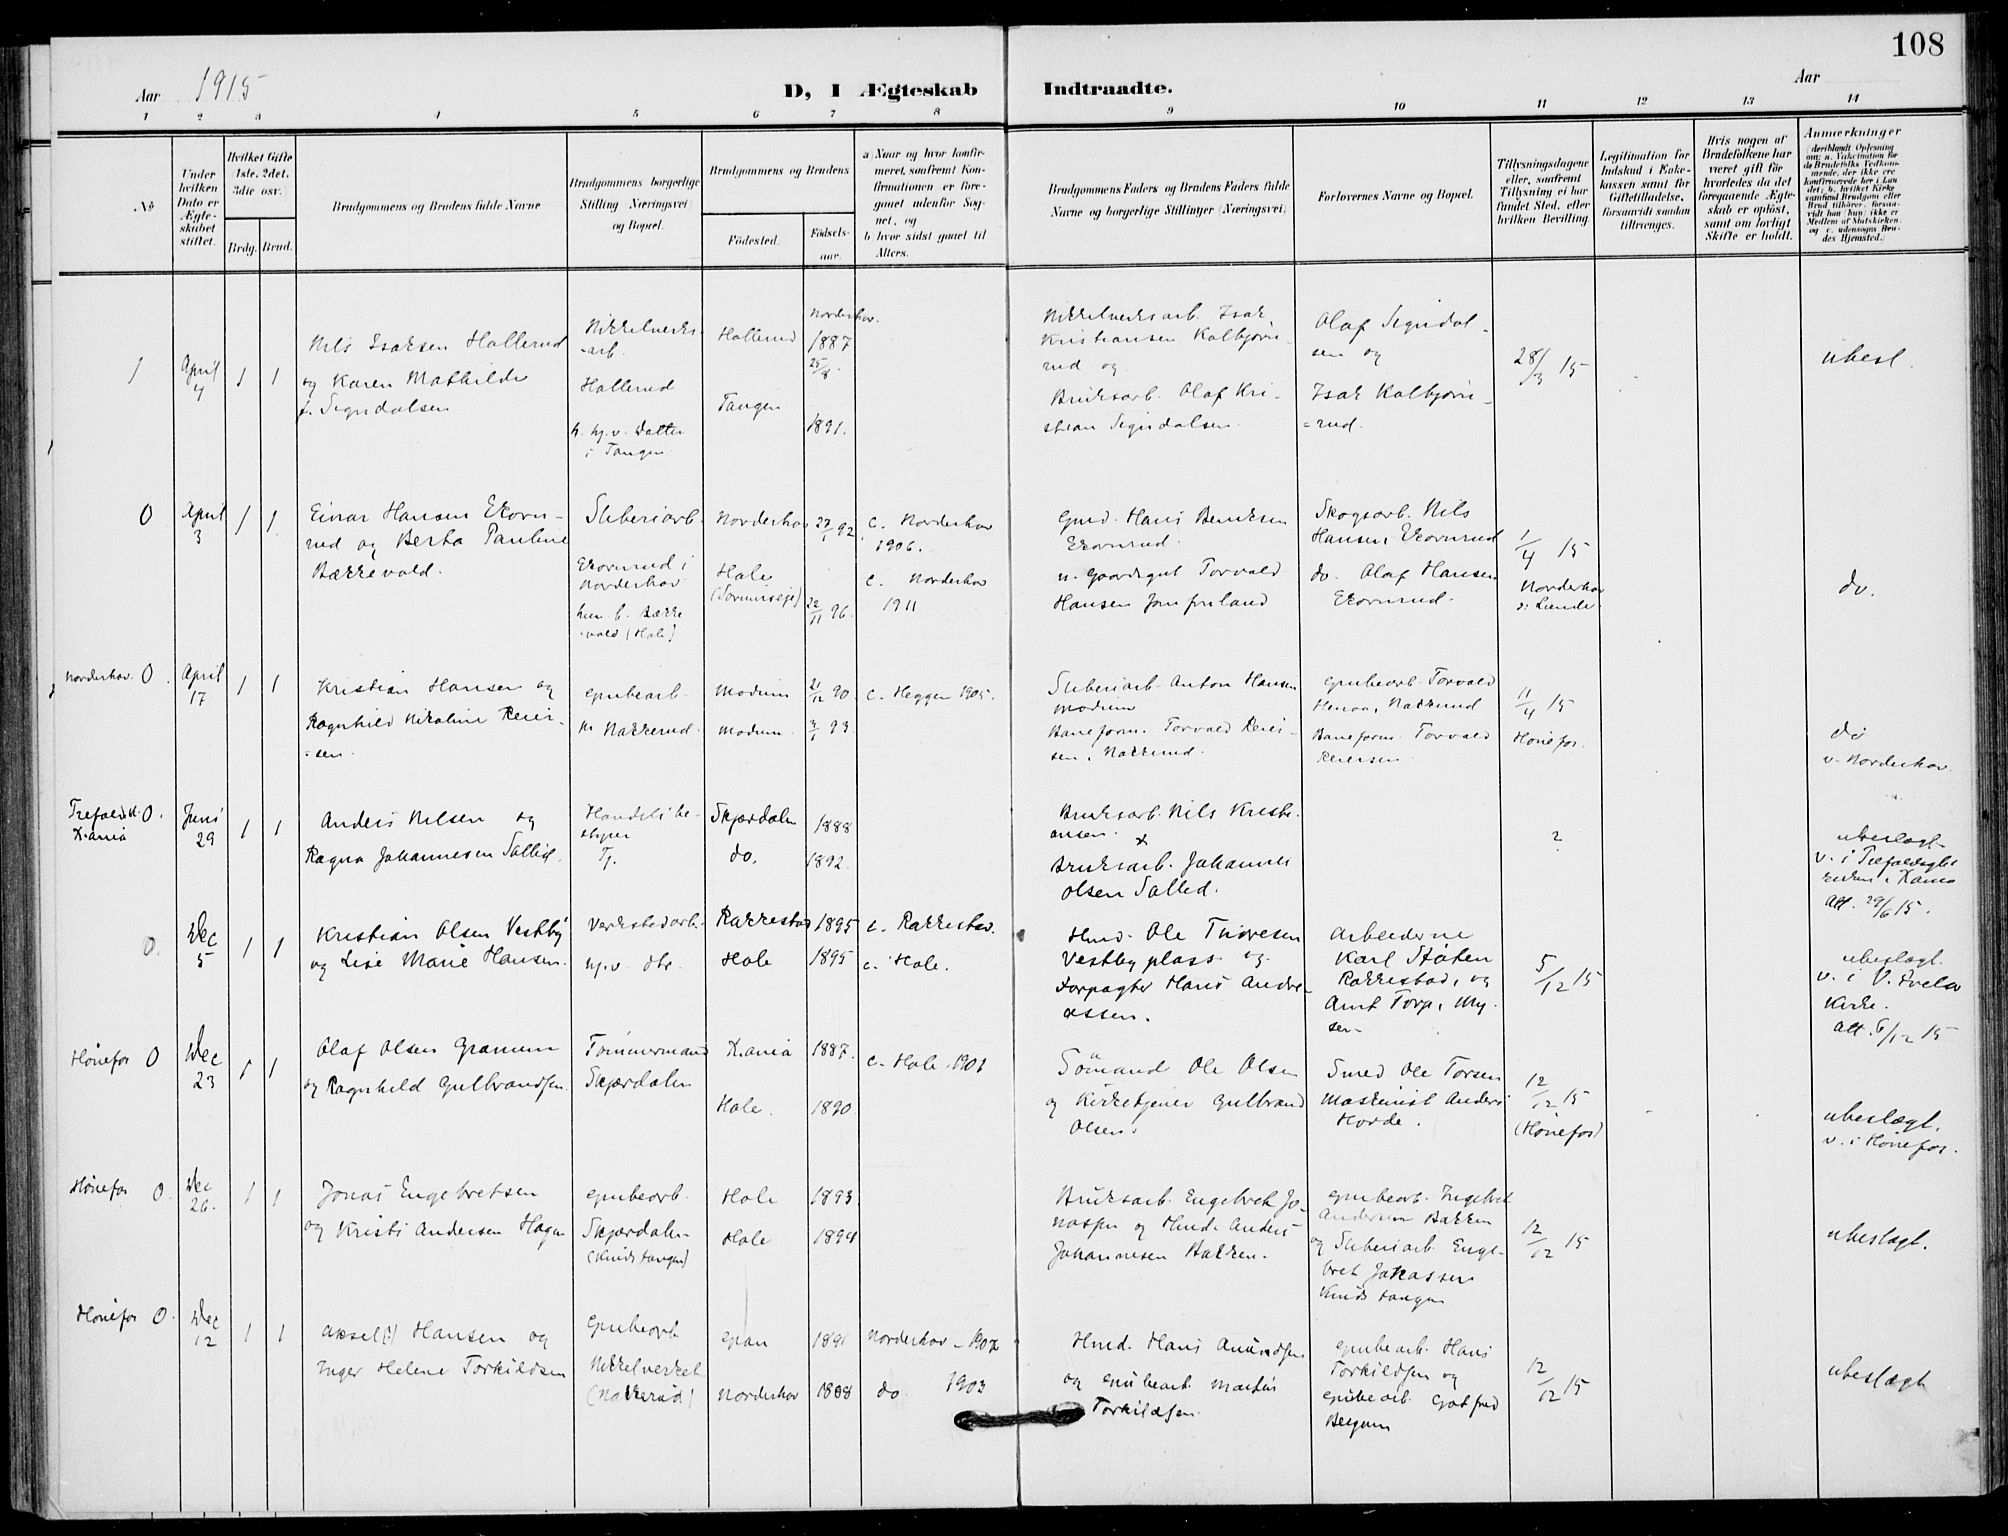 108
Aar 1915
D, I Ægteskab Indtraadte.
Aar
1 2 3 4 5 6 7 8 9 10 11 12 13 14
No
Under hvilken Dato er Ægteskabet stiftet.
Hvilket Gifte 1ste, 2det, 3die osv.
Brdg. Brud.
Brudgommens og Brudens fulde Navne
Brudgommens borgerlige Stilling (Næringsvei) og Bopæl.
Brudgommens og Brudens
Fødested. Fødselsaar.
a) Naar og hvor konfirmeret, saafremt Konfirmationen er foregaaet udenfor Sognet, og
b) hvor sidst gaaet til Alters.
Brudgommens Faders og Brudens Faders fulde Navne og borgerlige Stillinger (Næringsvei)
Forlovernes Navne og Bopæl.
Tillysningsdagene eller, saafremt Tillysning ei har fundet Sted, efter hvilken Bevilling.
Legitimation for Indskud i Enkekassen samt for Giftetilladelse, forsaavidt saadan tiltrænges.
Hvis nogen af Brudefolkene har været gift før hvorledes da det foregaaende Ægteskab er opløst, samt om lovligt Skifte er holdt.
Anmerkninger (deriblandt Oplysning om: a. Vakcination for de Brudefolks Vedkommende, der ikke ere konfirmerede her i Landet; b. hvilket Kirkesamfund Brudgom eller Brud tilhører, forsaavidt han (hun) ikke er Medlem af Statskirken, og c. udensogns Brudes Hjemsted.)
1
April 4
1 1
Nils Isaksen Hallerud
og Karen Mathilde
f. Signdalsen
Nikkelverks-
arb.
Hallerud
h. hj.v. Datter
i Tangen
Hallerud
Tangen
Norderhov.
1887
25/8
1891.
Nikkelverksarb. Isak
Kristiansen Kalbjørn
rud og
Bruksarb. Olaf Kri-
stian Signdalsen.
Olaf Signdal-
sen og
Isak Kalbjørn-
=rud.
28/3 15
ubesl.
0
April 3
1 1
Einar Hansen Ekorn-
rud og Berta Pauline
Bækkevold.
Sliberiarb.
Ekornrud i
Norderhov
hun b. Bække
vold (Hole)
Norderhov
Hole
27/1 92
22/11 96.
c. Norderhov
1906.
c. Norderhov
1911
Gmd. Hans Henriksen
Ekornrud.
n. Gaardsgut Torvald
Hansen
Skogsarb. Nils
Hansen, Ekornrud
do. Olaf Hansen
Ekornrud.
1/4 15
Norderhov
do.
Norderhov. 0.
April 17
1 1
Kristian Hansen og
Ragnhild Nikoline Reier-
=sen.
grubearb.
Nakkerud.
Modum
Modum.
21/12 90
93
c. Heggen 1905.
Sliberiarb. Anton Hansen
Modum
Baneform. Torvald Reier-
sen, Nakkerud.
grubearb. Torvald
Nakkerud
Baneform. Torvald
Reiersen
11/4 15
Hønefos.
do
v. Norderhov.
Trefoldk.
K.ania
0.
Juni 29
1 1
Anders Nilsen og
Ragna Johannesen Salled.
Handelsbe-
styrer
Tj.
Skjærdalen
do.
1888
1892.
Bruksarb. Nils Kristi-
ansen.
x
Bruksarb. Johannes
Olsen Salled.
?
ubeslægt.
v. i Trefoldigh.
kirken i K.ania
Att. 29/6 15.
0.
Dec 5
1 1
Kristian Olsen Vestby
og Lise Marie Hansen.
Verkstedarb.
hj.v. dtr.
Rakkestad
Hole
1895
1895
c. Rakkestad.
c. Hole.
Hmd. Ole Thoresen
Vestby plass og
Forpagter Hans Andre-
assen.
Arbeiderne
Karl Støten
Rakkestad, og
Arnt Torp, My-
sen.
5/12 15
ubeslægt.
v. i V. Frelser
Kirke.
Att. 6/12 15
Hønefos 0
Dec 23
1 1
Olaf Olsen Gramum
og Ragnhild Gulbrandsen.
Tømmermand
Skjærdalen
K.ania
Hole.
1887.
1890.
c. Hole. 1901
Sömand Ole Olsen
og Kirketjener Gulbrand
Olsen.
Smed Ole Torsen
Maskinist Anders
Horde.
12/12 15
(Hønefos)
ubeslægt.
v. i Hønefos.
Hønefos 0.
Dec 26.
1 1
Jonas Engebretsen
og Kristi Andersen Hagen
grubearb.
Skjærdalen
(Knidstangen)
Hole
Hole
1893
1894
Bruksarb. Engebret Jo-
nassen og Hmd. Anders
Johannesen Bakken.
grubearb. Ingebret
Andersen Bakken
og Sliberiarb. Enge-
bret Jonassen
Knidstangen
12/12 15
ubeslægt.
Hønefos 0.
Dec 12
1 1
Aksel(?) Hansen og
Inger Helene Torkildsen
Grubearb.
Nikkelverket
(Nakkerud)
Gran
Norderhov
1891
1888
Norderhov - 1907
do. 1903
Hmd. Hans Amundsen
og grubearb. Martin
Torkildsen.
grubearb. Hans
Torkildsen og
grubearb. Gotfred
Bergum
12/12 15
ubeslægt